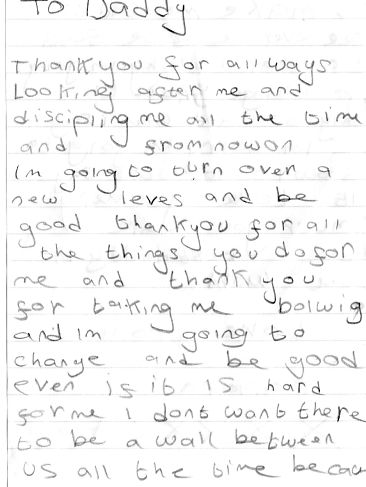 To Daddy
Thankyou for all ways
Looking after me and
discipling me all the time
and from now on
Im going to turn over a
new leves and be
good thankyou for all
the things you do for
me and thank you
for taiking me bolwig
and Im going to
change and be good
even if it is hard
for me I dont want there
to be a wall between
us all the time becau